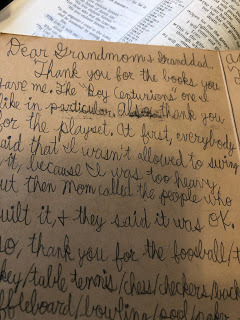 Dear Grandmom & Granddad,
Thank you for the books you
gave me. The "Boy Centurions" one I
like in particular. Also, thank you
for the playset. At first, everybody
said that I wasn't allowed to swing
it, because I was too heavy,
but then Mom called the people who
built it, & they said it was OK.
So, thank you for the foosball/
key/table tennis/chess/checkers/back
ffleboard/bowling/pool/poker